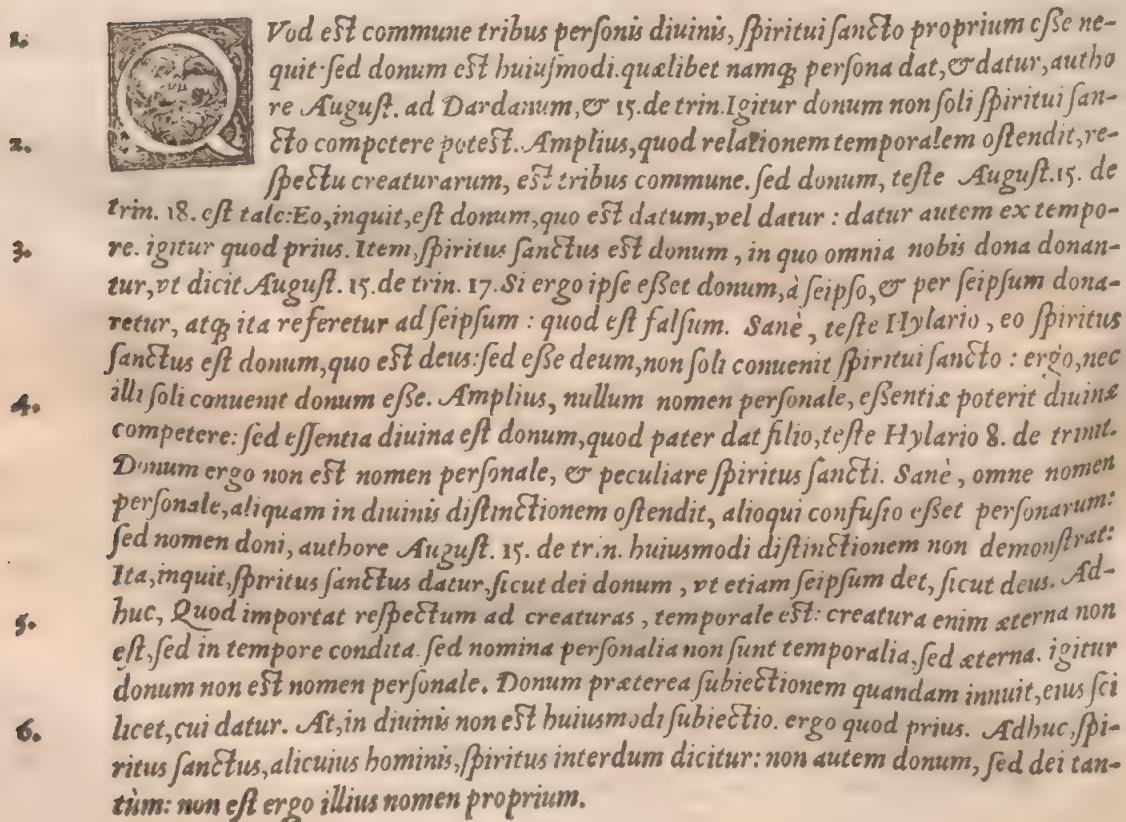 1. QVod est commune tribus personis diuinis, spiritui sancto proprium esse ne-
quit sed donum est huiusmodi. quælibet namq; persona dat, & datur, autho
re August. ad Dardanum, & 15. de trin. Igitur donum non soli spiritui san-
2. cto competere potest. Amplius, quod relationem temporalem ostendit, re-
spectu creaturarum, est tribus commune. sed donum, teste August. 15. de
trin. 18. est tale: Eo, inquit, est donum, quo est datum, vel datur : datur autem ex tempo-
3. re. igitur quod prius. Item, spiritus sanctus est donum, in quo omnia nobis dona donan-
tur, vt dicit August. 15. de trin. 17. Si ergo ipse esset donum, à seipso, & per seipsum dona-
retur, atq; ita referetur ad seipsum : quod est falsum. Sanè, teste Hylario, eo spiritus
sanctus est donum, quo est deus: sed esse deum, non soli conuenit spiritui sancto : ergo, nec
4. illi soli conuenit donum esse. Amplius, nullum nomen personale, essentiæ poterit diuinæ
competere: sed essentia diuina est donum, quod pater dat filio, teste Hylario 8. de trinit.
Donum ergo non est nomen personale, & peculiare spiritus sancti. Sanè, omne nomen
personale, aliquam in diuinis distinctionem ostendit, alioqui confusio esset personarum:
sed nomen doni, authore August. 15. de trin. huiusmodi distinctionem non demonstrat:
Ita, inquit, spiritus sanctus datur, sicut dei donum, vt etiam seipsum det, sicut deus. Ad-
5. huc, Quod importat respectum ad creaturas, temporale est: creatura enim æterna non
est, sed in tempore condita. sed nomina personalia non sunt temporalia, sed æterna. igitur
donum non est nomen personale. Donum præterea subiectionem quandam innuit, eius sci
6. licet, cui datur. At, in diuinis non est huiusmodi subiectio. ergo quod prius. Adhuc, spi-
ritus sanctus, alicuius hominis, spiritus interdum dicitur: non autem donum, sed dei tan-
tùm: non est ergo illius nomen proprium.